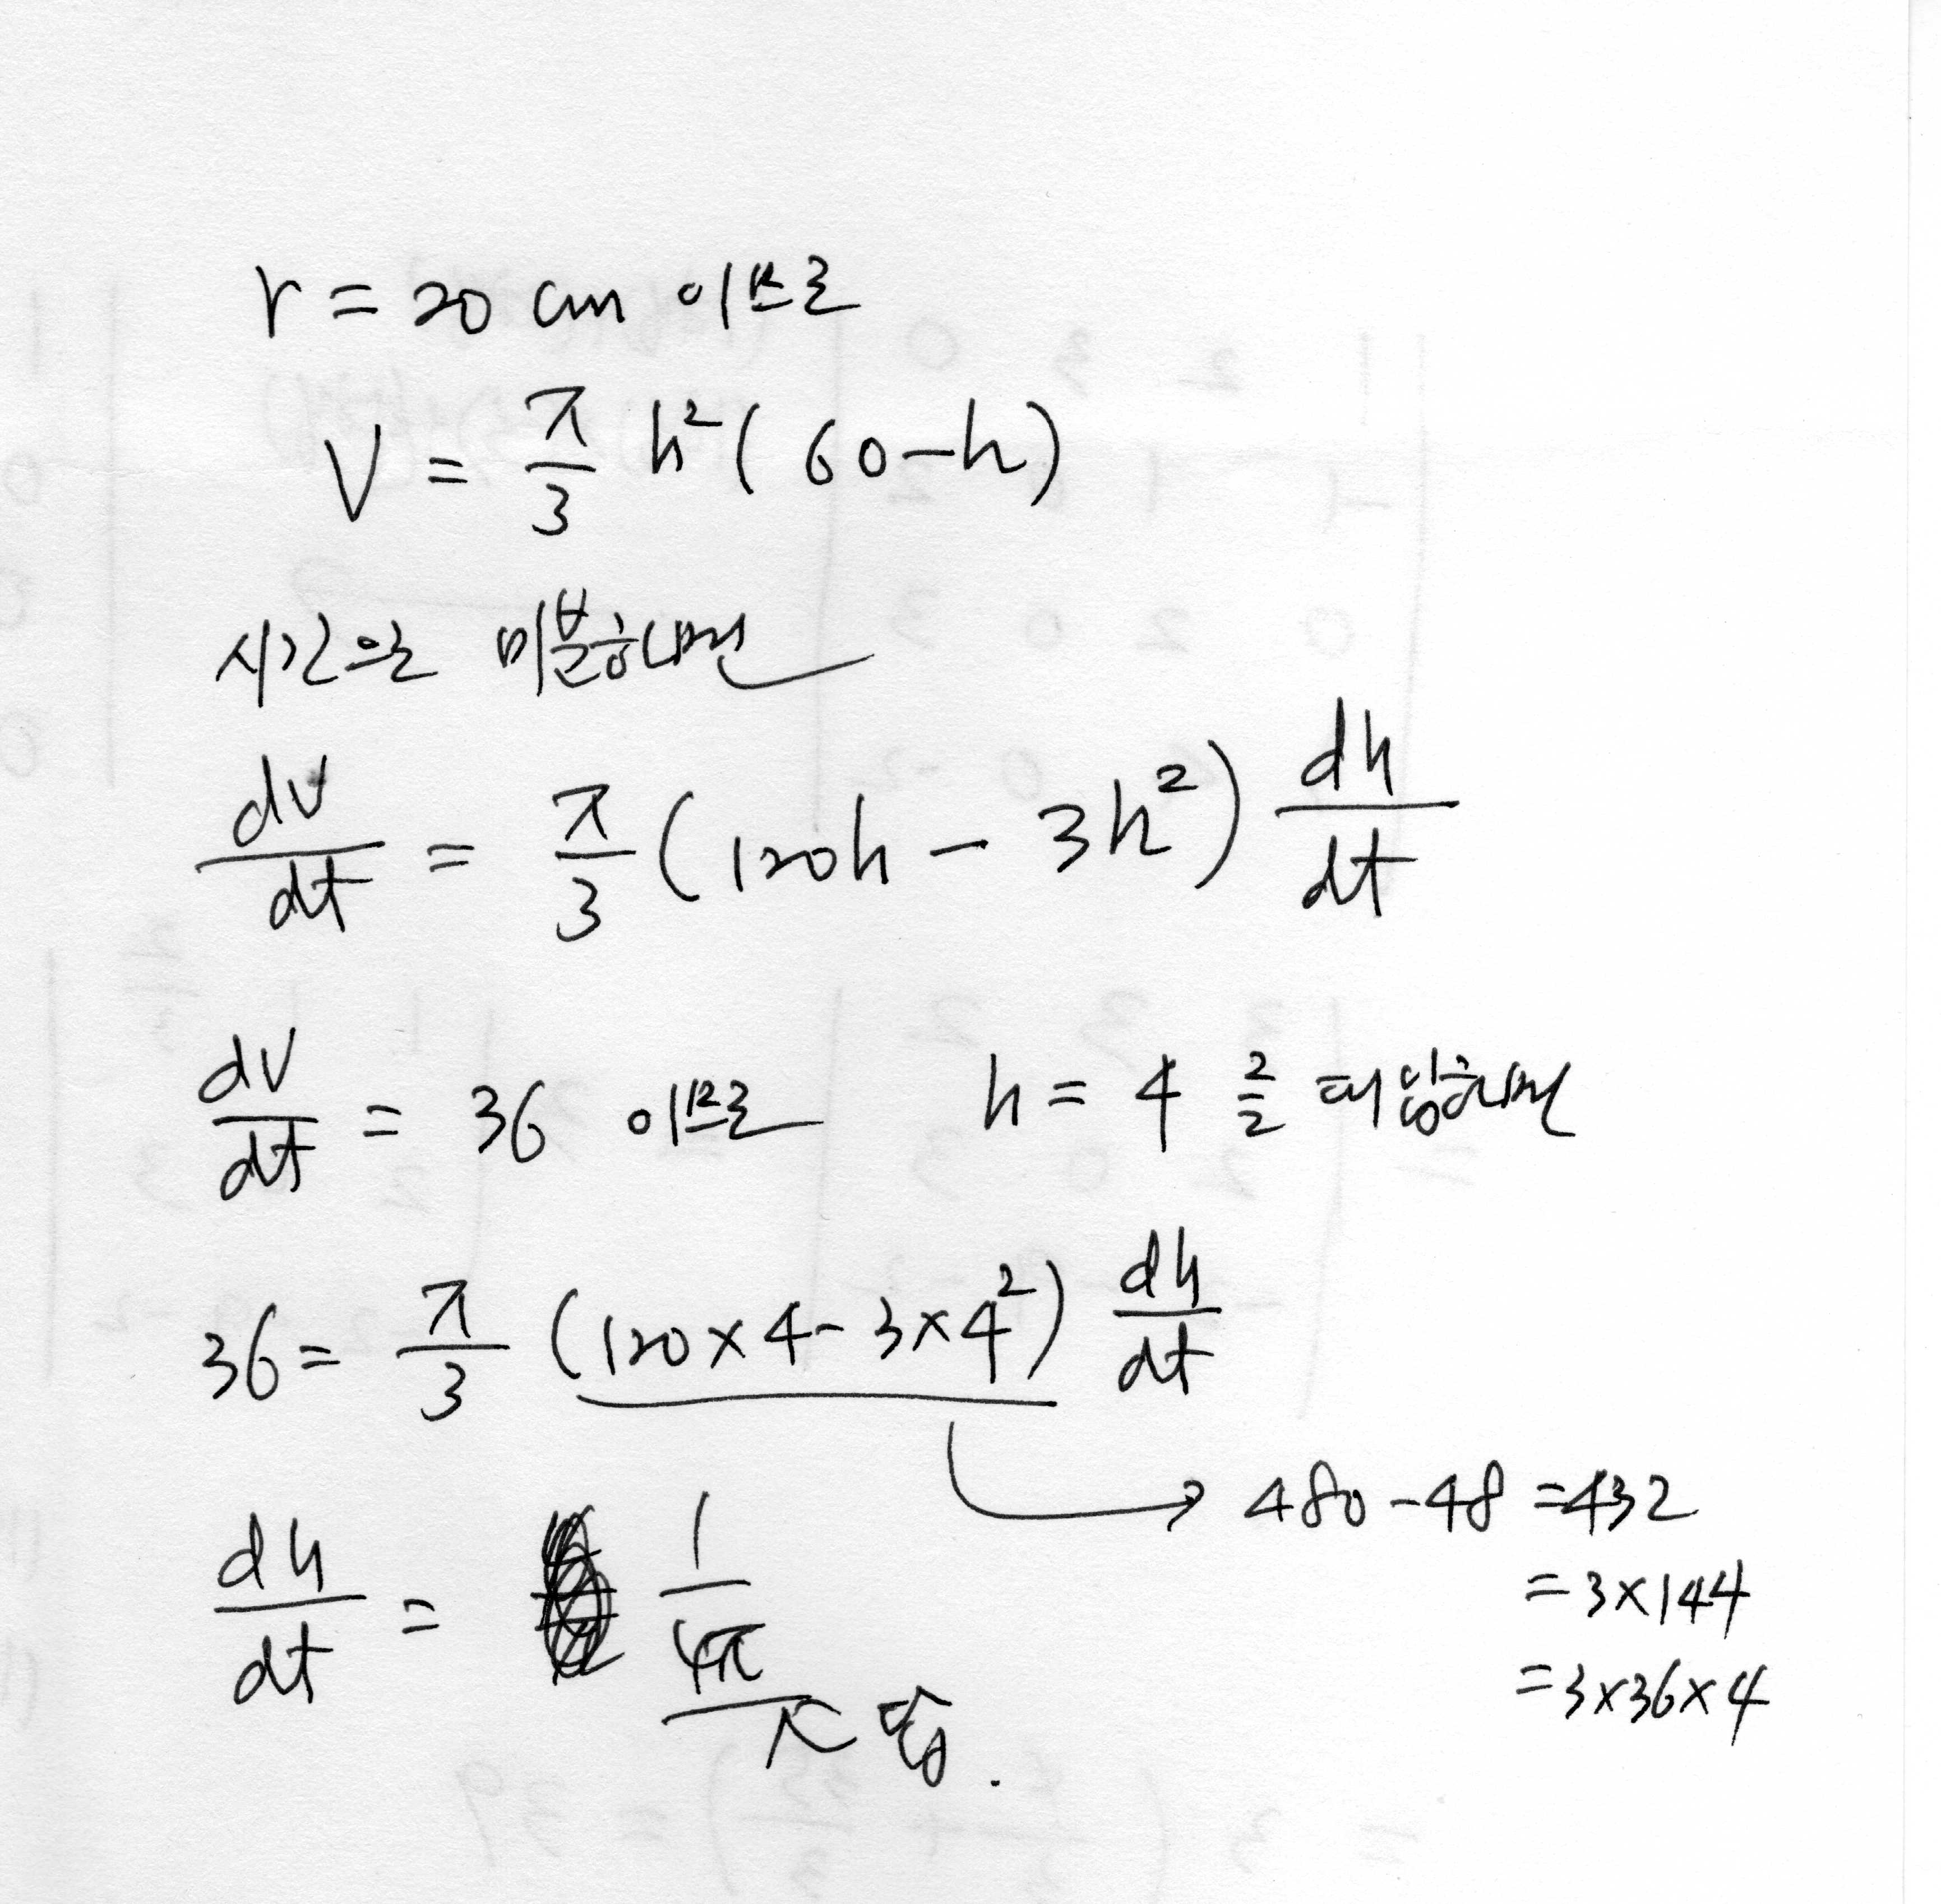 r = 20 cm 이므로
V = π/3 h²(60-h)
시간으로 미분하면
dV/dt = π/3 (120h - 3h²) dh/dt
dV/dt = 36 이므로 h = 4 를 대입하면
36 = π/3 (120×4 - 3×4²) dh/dt
→ 480 - 48 = 432
= 3×144
= 3×36×4
dh/dt = 1/4π
답.